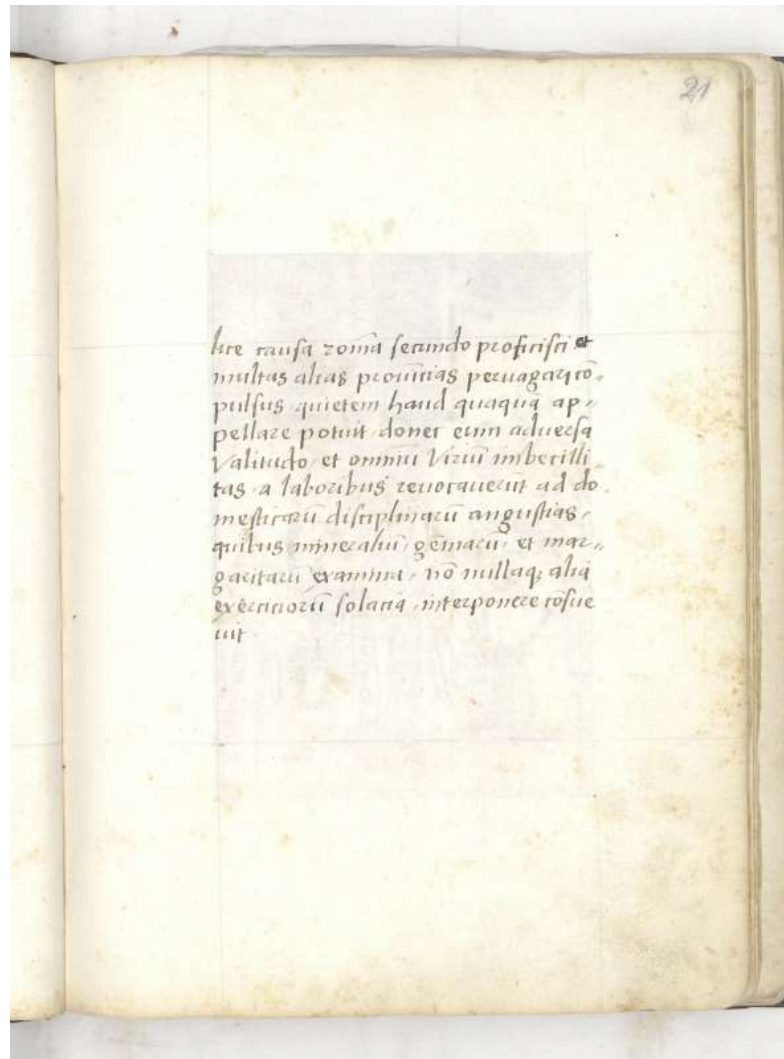 21
lite causa romā secundo proficisci et
multas alias prouīcias peruagari cō„
pulsus quietem haud quaquā ap„
pellare potuit donec eum aduersa
Valitudo et omniū Viriū imbecilli„
tas a laboribus reuocauerūt ad do„
mesticarū disciplinarū angustias,
quibus mineraliū, gēmarū, et mar„
garitarū examina, nō nullaqꝫ alia
exercitiorū solacia, interponere cōsue
uit